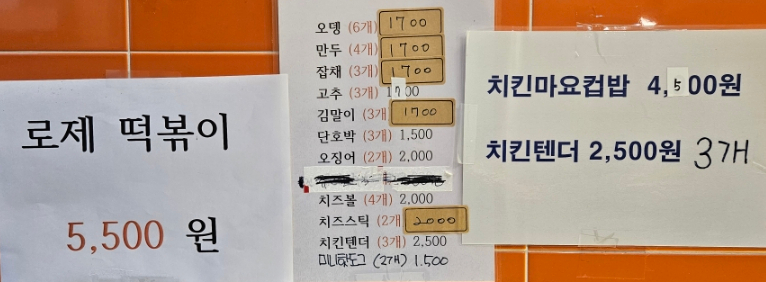 로제 떡볶이
5,500 원
오뎅 (6개) 1700
만두 (4개) 1700
잡채 (3개) 1700
고추 (3개) 1700
김말이 (3개) 1700
단호박 (3개) 1,500
오징어 (2개) 2,000
치즈볼 (4개) 2,000
치즈스틱 (2개 2000
치킨텐더 (3개) 2,500
미니핫도그 (2개) 1.500
치킨마요컵밥 4,500원
치킨텐더 2,500원 3개